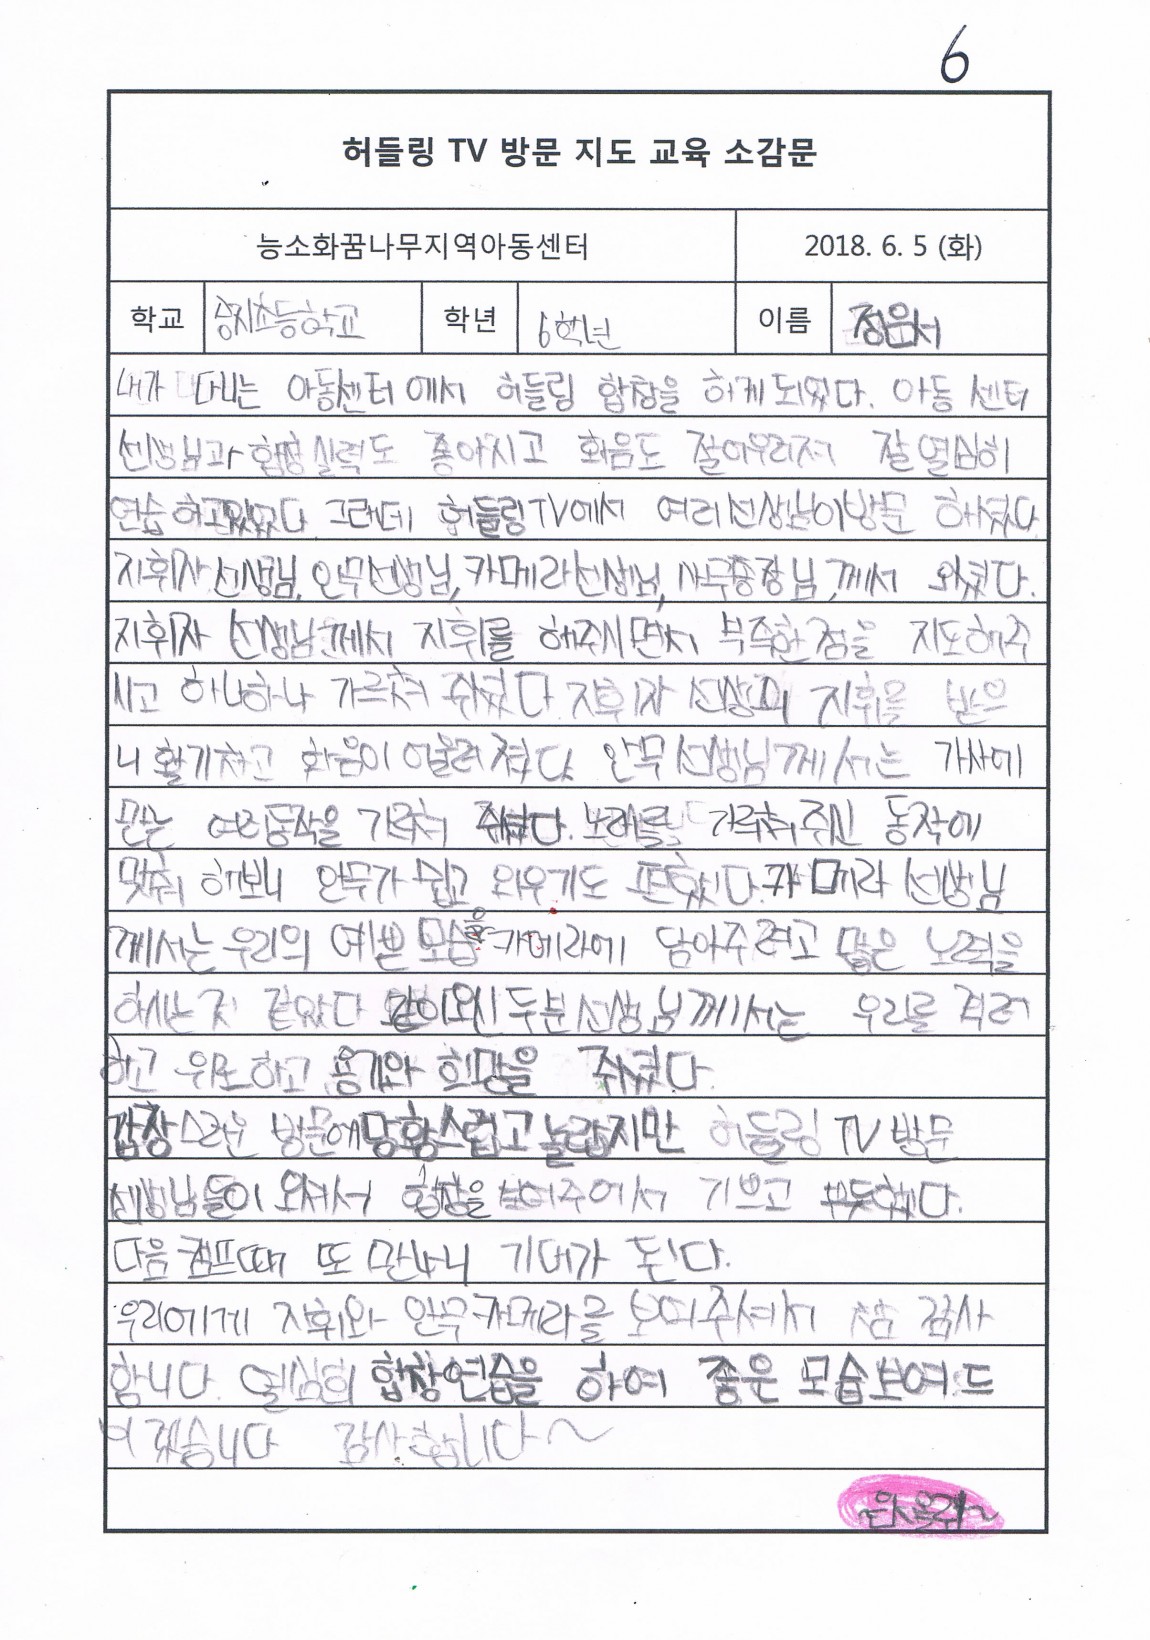 6
허들링 TV 방문 지도 교육 소감문
능소화꿈나무지역아동센터 2018. 6. 5 (화)
학교 공지초등학교 학년 6학년 이름 정윤서
내가 다니는 아동센터에서 허들링 합창을 하게 되었다. 아동 센터
선생님과 합창실력도 좋아지고 화음도 잘어우러져 잘 열심히
연습 하고있었다 그런데 허들링TV에서 여러선생님이방문 하셨다
지휘자선생님, 안무선생님, 카메라선생님, 사무총장님,께서 와줬다.
지휘자 선생님께서 지휘를 해주시면서 부족한점을 지도해주
시고 하나하나 가르쳐 주셨다 지휘자 선생님의 지휘를 받으
니 활기차고 화음이 어울려졌다 안무선생님께서는 가사에
맞는 여러동작을 가르쳐 주셨다. 노래를 가르쳐주신 동작에
맞춰 해보니 안무가 쉽고 외우기도 편했다. 카메라 선생님
께서는 우리의 예쁜 모습을 카메라에 담아주려고 많은 노력을
하시는 것 같았다 같이오신 두분선생님께서는 우리를 격려
하고 위로하고 용기와 희망을 주셨다.
갑작스러운 방문에 당황스럽고 놀랍지만 허들링 TV 방문
선생님들이 오셔서 합창을 보여주어서 기쁘고 뿌듯했다.
다음 캠프때 또 만나니 기대가 된다.
우리에게 지휘와 안무 카메라를 보여주셔서 참 감사
합니다. 열심히 합창연습을 하여 좋은 모습보여드
리겠습니다 감사합니다~